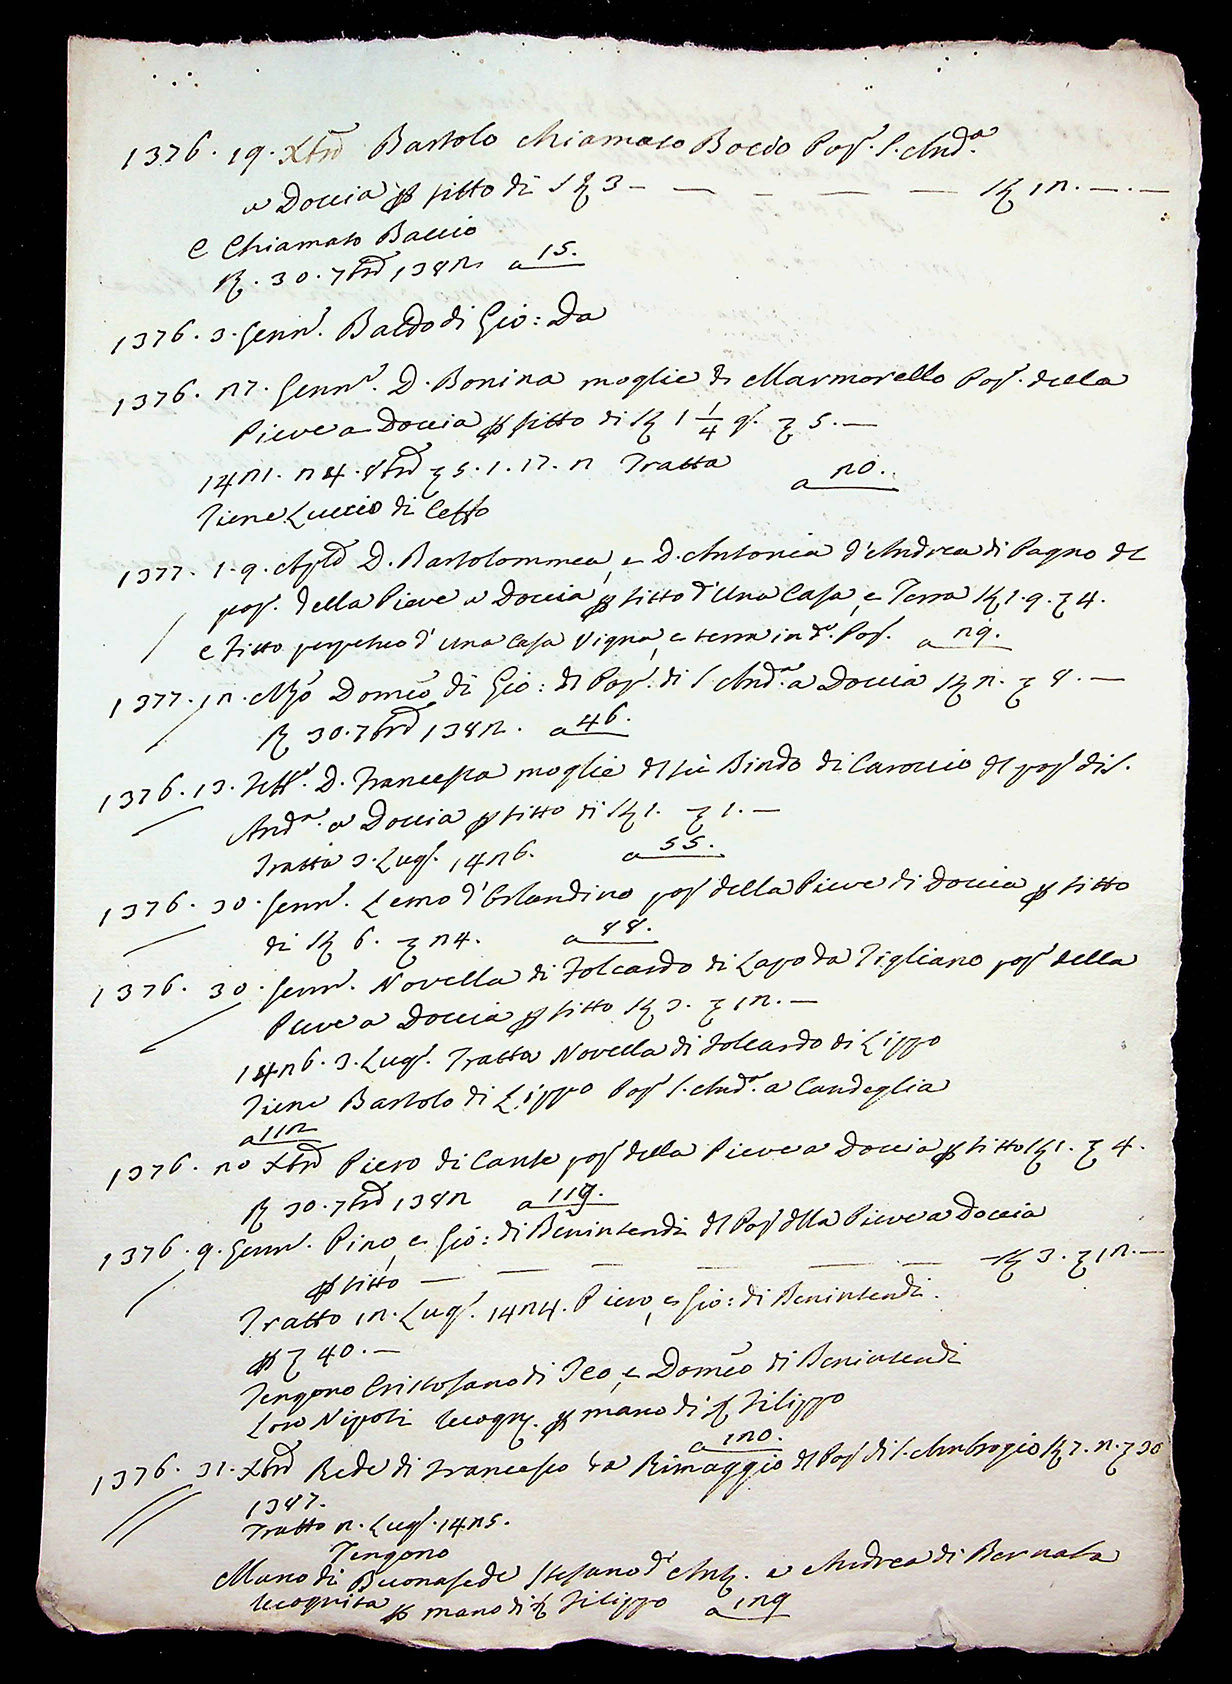 1376. 19. Xbrē Bartolo chiamato Boccio Pop. S. And.a
a Doccia p fitto di St 3 — — — — — St 12. —. —
E Chiamato Baccio
R. 30. 7brē 1382 a 15.
1376. 3. Genn. Baldo di Gio: Da
1376. 27. Genn. D. Bonina moglie di Marmorello Pop. della
Pieve a Doccia p fitto di St 1 1/4 5. —
1421. 24. 8brē 5. 1. 17. 2 Tratta a 20.
Tiene Luccio di Ceffo
1377. 1. 9. Aplē D. Bartolommea, e D. Antonia d'Andrea di Pagno del
pop. della Pieve a Doccia p fitto d'una Casa, e Terra St 1. 9. 4.
E fitto perpetuo d'una Casa Vigna, e terra in d.o Pop. a 29.
1377. 12. Mgō Domēo di Gio: del Pop. di S. And.a a Doccia St 2. 8. —
R 30. 7brē 1382. a 46.
1376. 13. Febb. D. Francesca moglie del fù Bindo di Caroccio del pop di S.
And.a a Doccia p fitto di St 1. 1. —
Tratta 3. Lugl. 1426. a 55.
1376. 30. Genn. Lemo d'Orlandino pop della Pieve di Doccia p fitto
di St 6. 24. a 88.
1376. 30. Genn. Novella di Folcardo di Lapo da Tigliano pop della
Pieve a Doccia p fitto St 3. 12. —
1426. 3. Lugl. Tratta Novella di Folcardo di Lippo
Tiene Bartolo di Lippo Pop S. And.a a Candeglia
a 112
1376. 20 Xbrē Piero di Cante pop della Pieve a Doccia p fitto St 1. 4.
R 30. 7brē 1382 a 119.
1376. 9. Genn. Pino, e Gio: di Benintendi del Pop della Pieve a Doccia
p fitto — — — — — — St 3. 12. —
Tratto 12. Lugl. 1424. Piero, e Gio: di Benintendi.
p 40. —
Tengono Cristofano di Teo, e Domēo di Benintendi
Loro Nipoti p mano di Filippo
a 120.
1376. 31. Xbrē Rede di Francesco da Rimaggio del Pop di S. Ambrogio St 7. 2. 30
1387.
Tratto 2. Lugl. 1425.
Tengono
Mano di Buonafede Stefano d' Ant. e Andrea di Bernaba
p mano di Filippo a 129